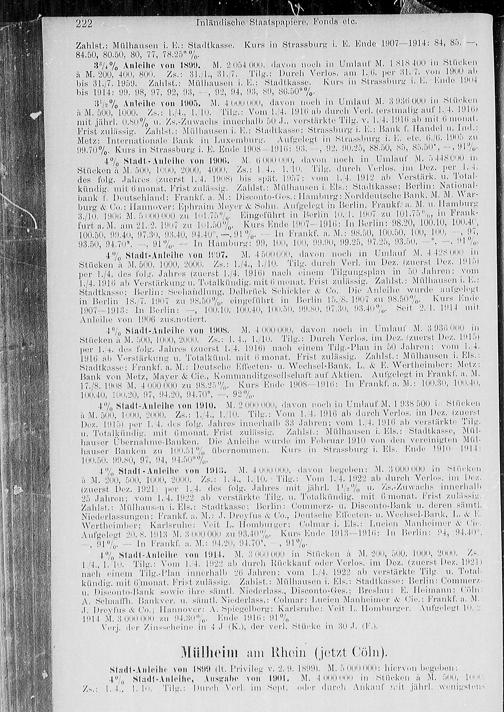 222 Inländische Staatspapiere, Fonds etc.
Zahlst.: Mülhausen i. E.: Stadtkasse. Kurs in Strassburg i. E. Ende 1907—1914: 84, 85, —,
84.50, 80.50, 80, 77, 78.25*%.
3½% Anleihe von 1899. M. 2 054 000, davon noch in Umlauf M. 1 818 400 in Stücken
à M. 200, 400, 800. Zs.: 31./1., 31./7. Tilg.: Durch Verlos. am 1./6. per 31./7. von 1900 ab
bis 31./7. 1959. Zahlst.: Mülhausen i. E.: Stadtkasse. Kurs in Strassburg i. E. Ende 1904
bis 1914: 99, 98, 97, 92, 93, —, 92, 94, 93, 89, 86.50*%.
3½% Anleihe von 1905. M. 4 000 000, davon noch in Umlauf M. 3 936 000 in Stücken
à M. 500, 1000. Zs.: 1./4., 1./10. Tilg.: Vom 1./4. 1916 ab durch Verl. (erstmalig auf 1./4. 1916)
mit jährl. 0.80% u. Zs.-Zuwachs innerhalb 50 J., verstärkte Tilg. v. 1./4. 1916 ab mit 6 monat.
Frist zulässig. Zahlst.: Mülhausen i. E.: Stadtkasse; Strassburg i. E.: Bank f. Handel u. Ind.;
Metz: Internationale Bank in Luxemburg. Aufgelegt in Strassburg i. E. etc. 6./6. 1905 zu
99.70%. Kurs in Strassburg i. E. Ende 1908—1916: 93, —, 92, 90.25, 88.50, 85, 85.50*, —, 91%.
4% Stadt-Anleihe von 1906. M. 6 000 000, davon noch in Umlauf M. 5 448 000 in
Stücken à M. 500, 1000, 2000, 4000. Zs.: 1./4., 1./10. Tilg.: Durch Verlos. im Dez. per 1./4.
des folg. Jahres (zuerst 1./4. 1908) bis spät. 1957; vom 1./4. 1912 ab Verstärk. u. Totalkündig.
mit 6 monat. Frist zulässig. Zahlst.: Mülhausen i. Els.: Stadtkasse; Berlin: Nationalbank
f. Deutschland; Frankf. a. M.: Disconto-Ges.; Hamburg: Norddeutsche Bank, M. M. Warburg
& Co.; Hannover: Ephraim Meyer & Sohn. Aufgelegt in Berlin, Frankf. a. M. u. Hamburg
3./10. 1906 M. 5 000 000 zu 101.75%. Eingeführt in Berlin 10./1. 1907 zu 101.75%, in Frankfurt
a. M. am 21./2. 1907 zu 101.50%. Kurs Ende 1907—1916: In Berlin: 98.20, 100.10, 100.40,
100.50, 99.40, 97.30, 93.40, 94.40*, —, 91%. — In Frankf. a. M.: 98.50, 100.50, 100, 100, —, 97,
93.50, 94.70*, —, 91%. — In Hamburg: 99, 100, 100, 99.90, 99.25, 97.25, 93.50, —*, —, 91%.
4% Stadt-Anleihe von 1907. M. 4 500 000, davon noch in Umlauf M. 4 428 000 in
Stücken à M. 500, 1000, 2000. Zs.: 1./4., 1./10. Tilg.: Durch Verl. im Dez. (zuerst Dez. 1915)
per 1./4. des folg. Jahres (zuerst 1./4. 1916) nach einem Tilgungsplan in 50 Jahren; vom
1./4. 1916 ab Verstärkung u. Totalkündig. mit 6 monat. Frist zulässig. Zahlst.: Mülhausen i. E.:
Stadtkasse; Berlin: Seehandlung, Delbrück Schickler & Co. Die Anleihe wurde aufgelegt
in Berlin 18./7. 1907 zu 98.50%, eingeführt in Berlin 15./8. 1907 zu 98.50%. Kurs Ende
1907—1913: In Berlin: —, 100.10, 100.40, 100.50, 99.80, 97.30, 93.40%. Seit 2./1. 1914 mit
Anleihe von 1906 zus.notiert.
4% Stadt-Anleihe von 1908. M. 4 000 000, davon noch in Umlauf M. 3 936 000 in
Stücken à M. 500, 1000, 2000. Zs.: 1./4., 1./10. Tilg.: Durch Verlos. im Dez. (zuerst Dez. 1915)
per 1./4. des folg. Jahres (zuerst 1./4. 1916) nach einem Tilg.-Plan in 50 Jahren; vom 1./4.
1916 ab Verstärkung u. Totalkünd. mit 6 monat. Frist zulässig. Zahlst.: Mülhausen i. Els.:
Stadtkasse; Frankf. a. M.: Deutsche Effecten- u. Wechsel-Bank, L. & E. Wertheimber; Metz:
Bank von Metz, Mayer & Cie., Kommanditgesellschaft auf Aktien. Aufgelegt in Frankf. a. M.
17./8. 1908 M. 4 000 000 zu 98.25%. Kurs Ende 1908—1916: In Frankf. a. M.: 100.30, 100.40,
100.40, 100.20, 97, 94.20, 94.70*, —, 92%.
4% Stadt-Anleihe von 1910. M. 2 000 000, davon noch in Umlauf M. 1 938 500 in Stücken
à M. 500, 1000, 2000. Zs.: 1./4., 1./10. Tilg.: Vom 1./4. 1916 ab durch Verlos. im Dez. (zuerst
Dez. 1915) per 1./4. des folg. Jahres innerhalb 33 Jahren; vom 1./4. 1916 ab verstärkte Tilg.
u. Totalkündig. mit 6 monat. Frist zulässig. Zahlst.: Mülhausen i. Els.: Stadtkasse, Mülhauser
Übernahme-Banken. Die Anleihe wurde im Februar 1910 von den vereinigten Mülhauser
Banken zu 100.51% übernommen. Kurs in Strassburg i. Els. Ende 1910—1914:
100.50, 99.80, 97, 94, 94.50*%.
4% Stadt-Anleihe von 1913. M. 4 000 000, davon begeben: M. 3 000 000 in Stücken
à M. 200, 500, 1000, 2000. Zs.: 1./4., 1./10. Tilg.: Vom 1./4. 1922 ab durch Verlos. im Dez.
(zuerst Dez. 1921) per 1./4. des folg. Jahres mit jährl. 1½% u. Zs.-Zuwachs innerhalb
25 Jahren; vom 1./4. 1922 ab verstärkte Tilg. u. Totalkündig. mit 6 monat. Frist zulässig.
Zahlst.: Mülhausen i. Els.: Stadtkasse; Berlin: Commerz- u. Disconto-Bank u. deren sämtl.
Niederlassungen; Frankf. a. M.: J. Dreyfus & Co., Deutsche Effekten- u. Wechsel-Bank, L. & E.
Wertheimber; Karlsruhe: Veit L. Homburger; Colmar i. Els.: Lucien Manheimer & Cie.
Aufgelegt 20./8. 1913 M. 3 000 000 zu 93.40%. Kurs Ende 1913—1916: In Berlin: 94, 94.40*,
—, 91%. — In Frankf. a. M.: 94.20, 94.70*, —, 91%.
4% Stadt-Anleihe von 1914. M. 3 000 000 in Stücken à M. 200, 500, 1000, 2000. Zs.
1./4., 1./10. Tilg.: Vom 1./4. 1922 ab durch Rückkauf oder Verlos. im Dez. (zuerst Dez. 1921)
nach einem Tilg.-Plan innerhalb 26 Jahren; vom 1./4. 1922 ab verstärkte Tilg. u. Totalkündig.
mit 6 monat. Frist zulässig. Zahlst.: Mülhausen i. Els.: Stadtkasse; Berlin: Commerz-
u. Disconto-Bank sowie ihre sämtl. Niederlass., Disconto-Ges.; Breslau: E. Heimann; Cöln:
A. Schaaffh. Bankver. u. sämtl. Niederlass.; Colmar: Lucien Manheimer & Cie.; Frankf. a. M.
J. Dreyfus & Co.; Hannover: A. Spiegelberg; Karlsruhe: Veit L. Homburger. Aufgelegt 10./2.
1914 M. 3 000 000 zu 94.30%. Ende 1916: 91%.
Verj. der Zinsscheine in 4 J. (K.), der verl. Stücke in 30 J. (F.).
Mülheim am Rhein (jetzt Cöln).
Stadt-Anleihe von 1899 (lt. Privileg v. 2./9. 1899). M. 5 000 000; hiervon begeben:
4% Stadt-Anleihe, Ausgabe von 1901. M. 4 000 000 in Stücken à M. 500, 1000
Zs.: 1./4., 1./10. Tilg.: Durch Verl. im Sept. oder durch Ankauf mit jährl. wenigstens